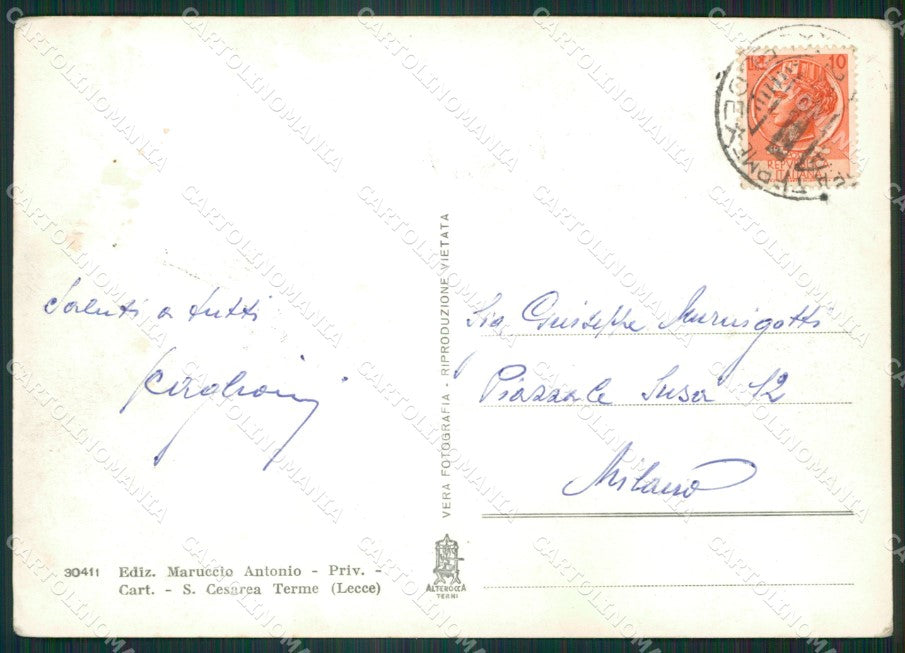 10
REPVBBLICA
ITALIANA
Saluti a tutti
Sig Giuseppe Murnigotti
Piazzale Susa 12
Milano
VERA FOTOGRAFIA - RIPRODUZIONE VIETATA
30411 Ediz. Maruccio Antonio - Priv. -
Cart. - S. Cesarea Terme (Lecce)
ALTEROCCA
TERNI
CARTOLINOMANIA